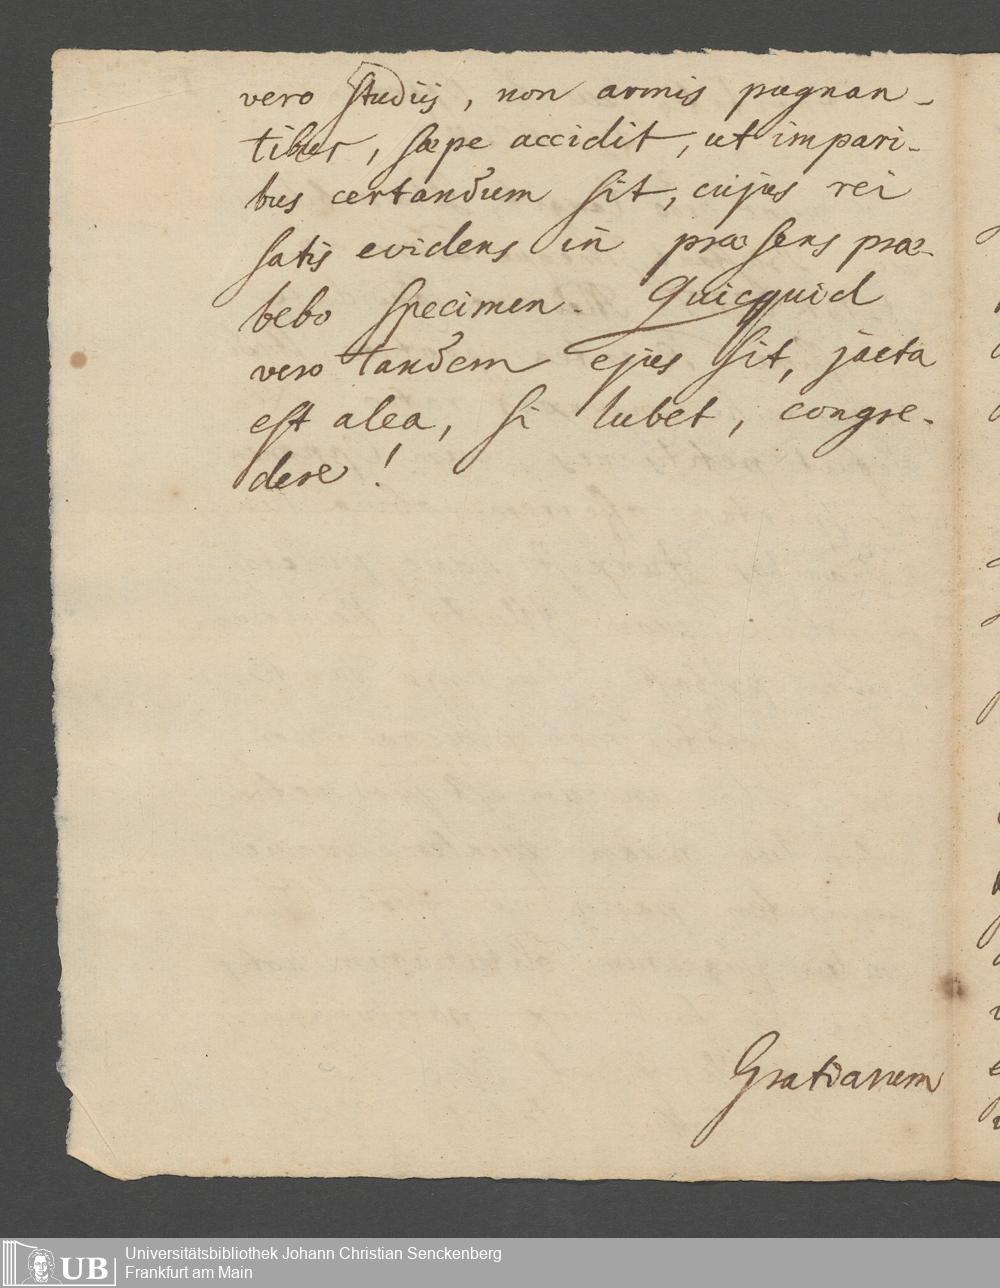 vero studiis, non armis pugnan-
tibus, sæpe accidit, ut impari-
bus certandum sit, cujus rei
satis evidens in præsens præ-
bebo specimen. Quicquid
vero tandem ejus sit, jacta
est alea, si lubet, congre-
dere!
Gratiarum
Universitätsbibliothek Johann Christian Senckenberg
Frankfurt am Main
UB